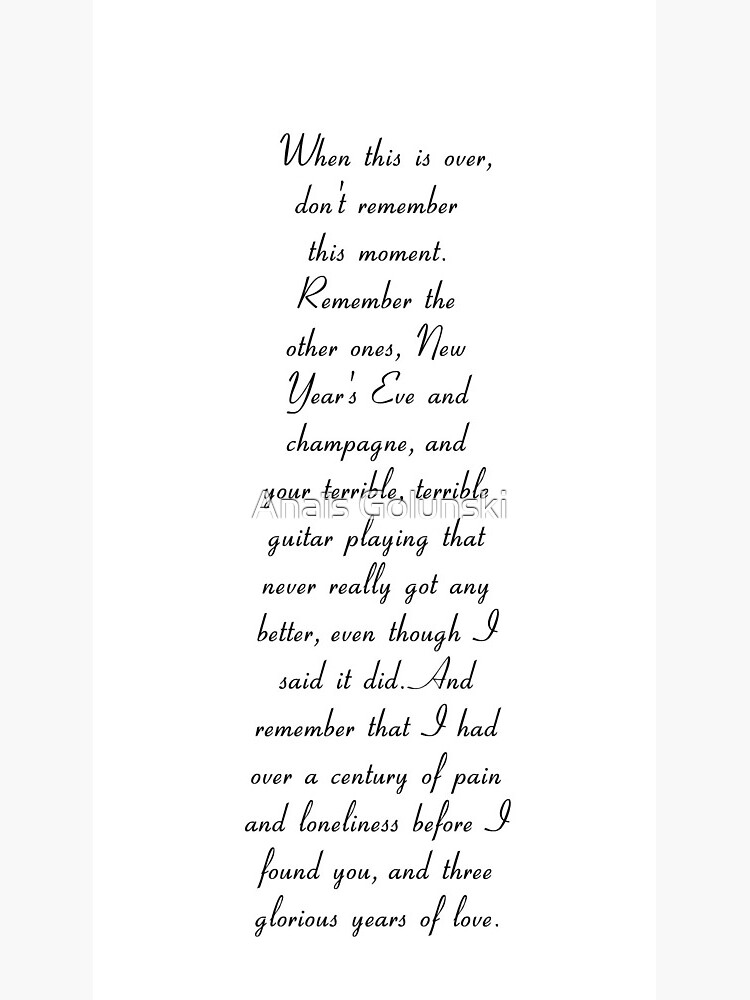 When this is over,
don't remember
this moment.
Remember the
other ones, New
Year's Eve and
champagne, and
your terrible, terrible
Anais Golunski
guitar playing that
never really got any
better, even though I
said it did.And
remember that I had
over a century of pain
and loneliness before I
found you, and three
glorious years of love.